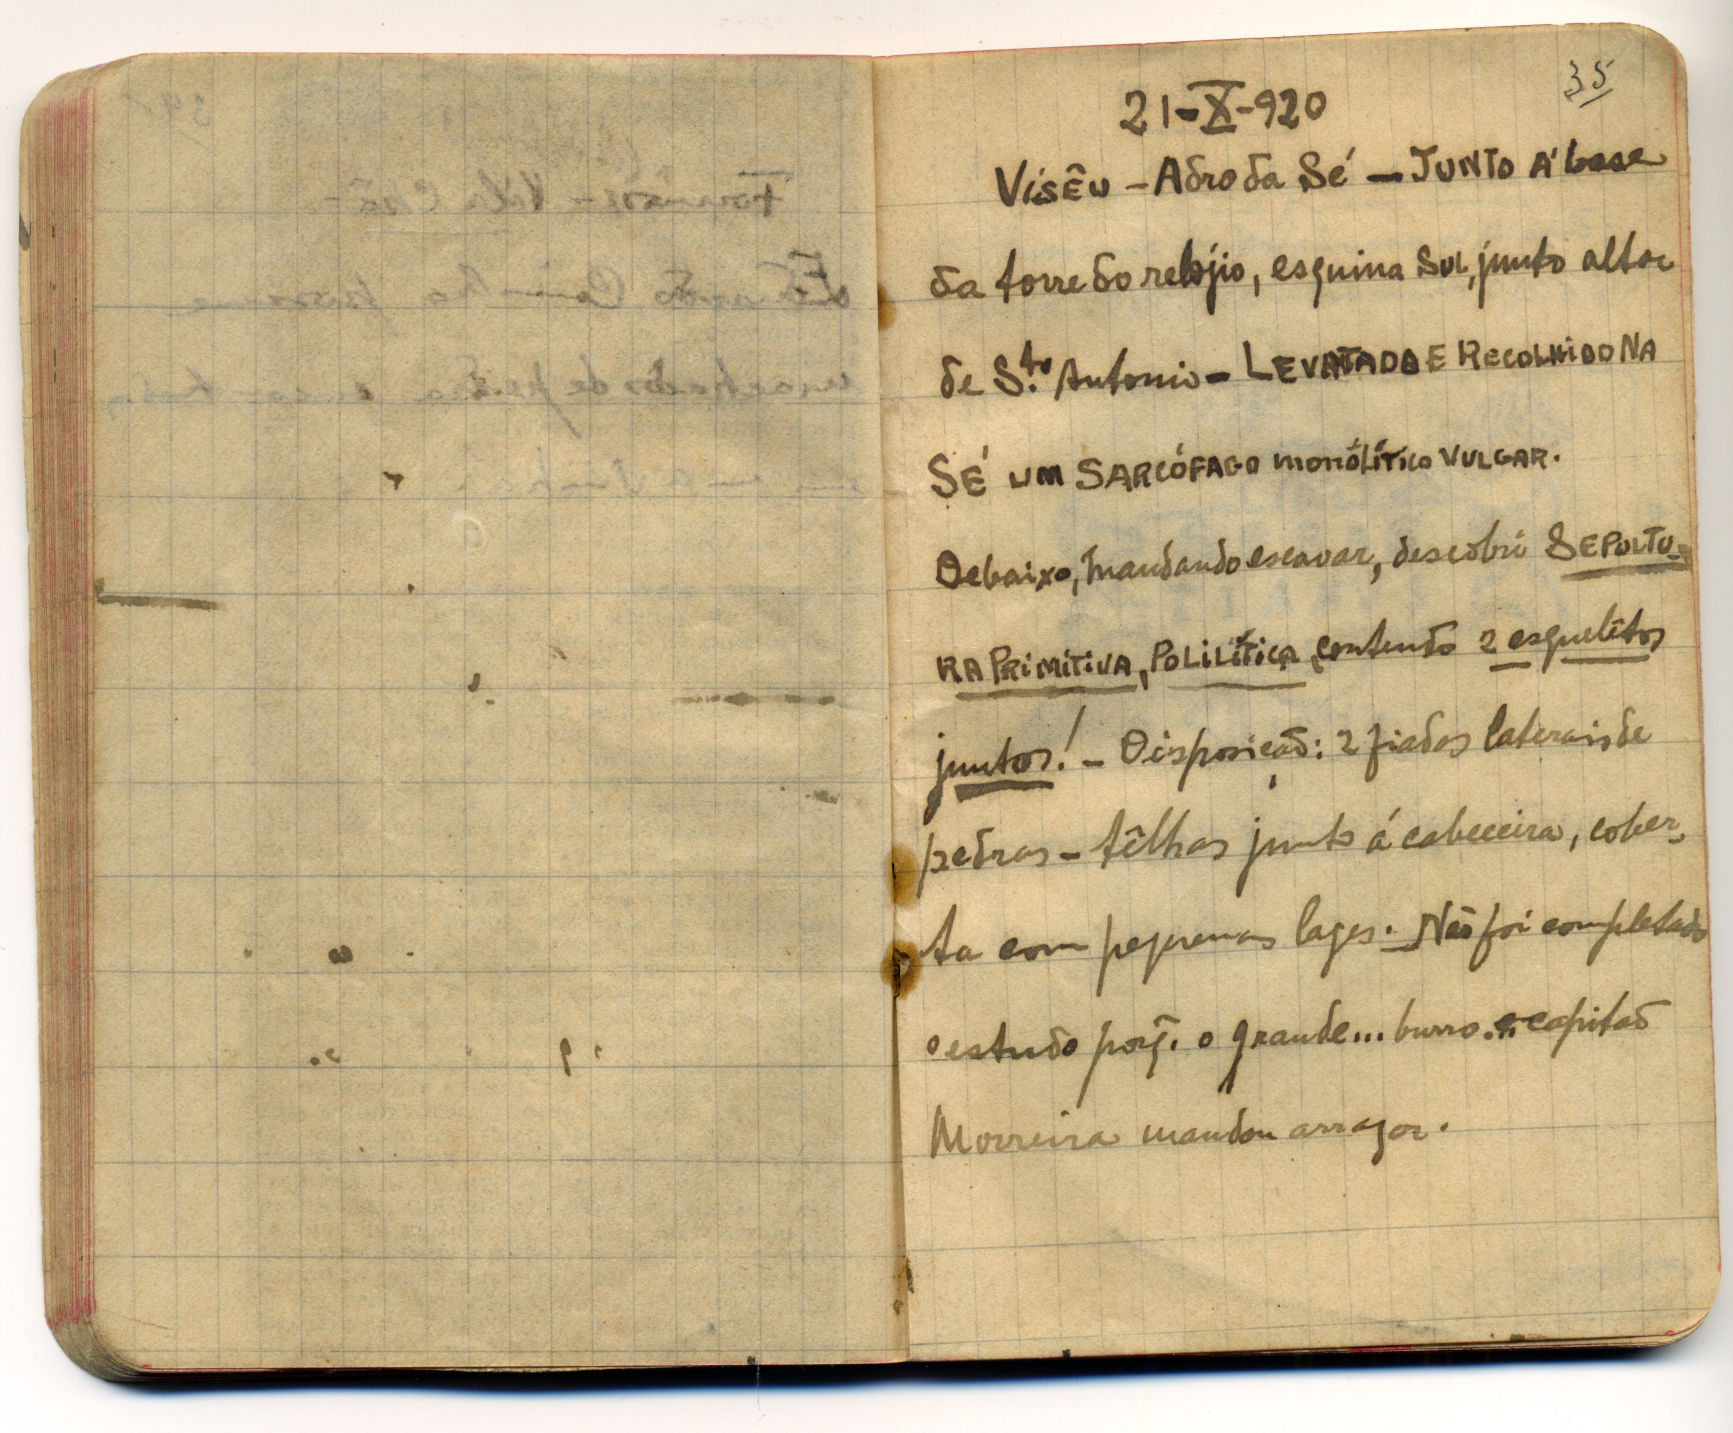 35
21-X-920
Visêu - Adro da Sé - JUNTO Á base
da torre do relójio, esquina SUL, junto altar
de S.to Antonio - LEVATADO E RECOLHIDO NA
SÉ UM SARCÓFAGO monólítico VULGAR.
Debaixo, mandando escavar, descobri SEPULTU-
RA PRIMITIVA, POLILÍTICA, contendo 2 esquelêtos
juntos! - Disposição: 2 fiadas laterais de
pedras - têlhas junto á cabeceira, cober-
ta com pequenas lages. - Não foi completado
o estudo porq̃. o grande... burro... e capitão
Morreira mandou arrazar.